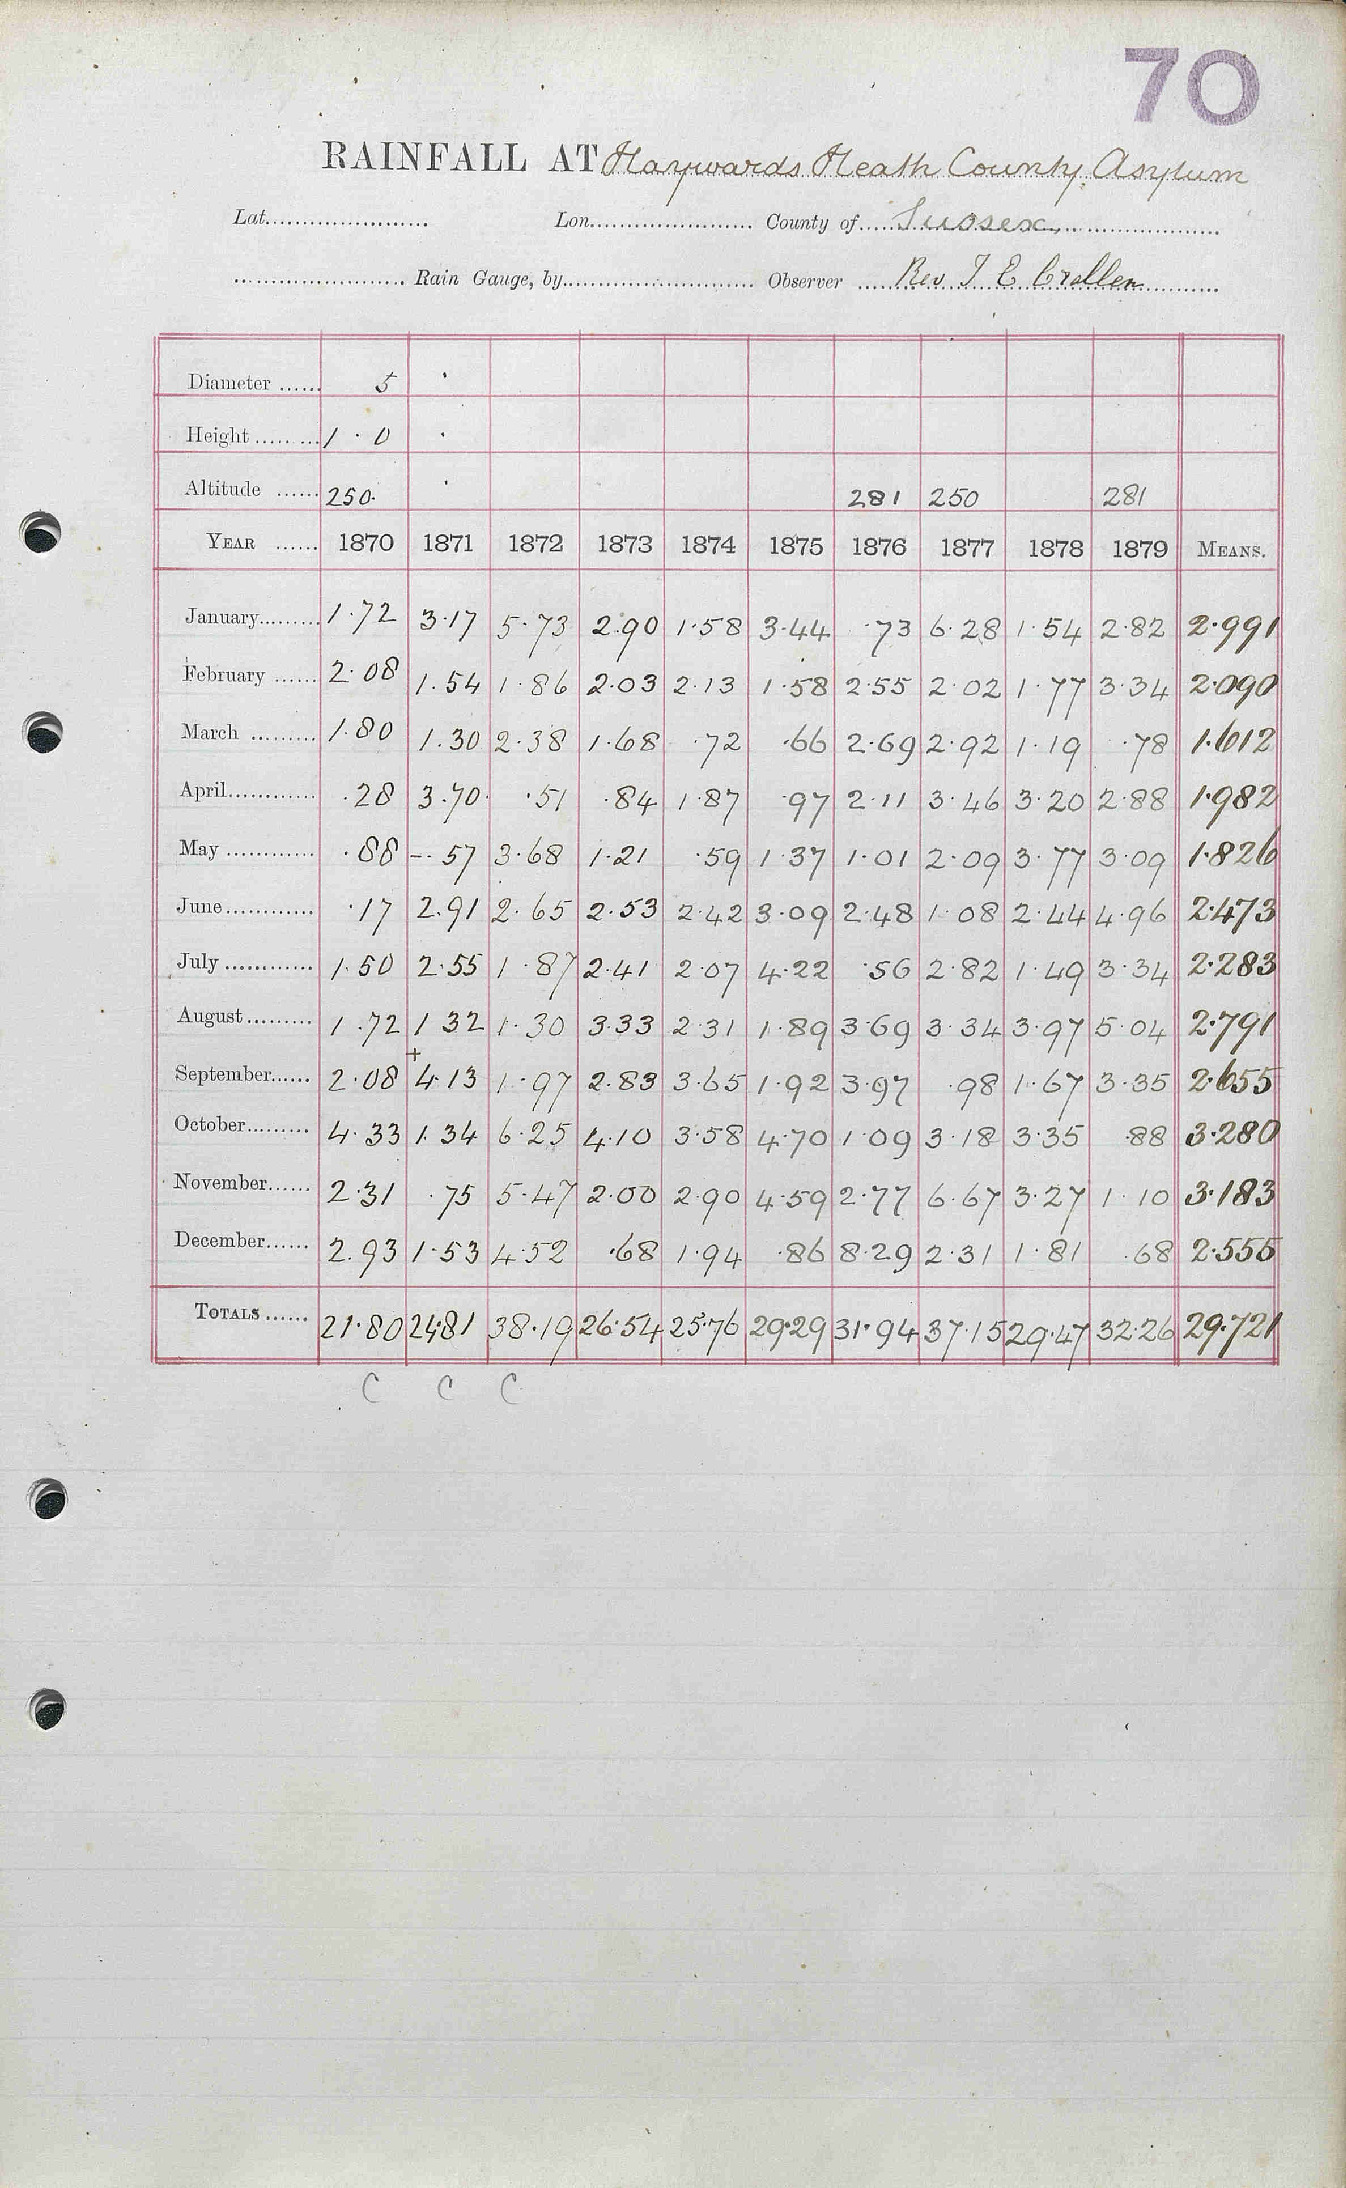 70
RAINFALL AT Haywards Heath County Asylum
Lat. Lon. County of Sussex
Rain Gauge, by Observer Rev T E Crallan
Diameter 5
Height 1 · 0
Altitude 250 281 250 281
YEAR 1870 1871 1872 1873 1874 1875 1876 1877 1878 1879 MEANS.
January 1·72 3·17 5·73 2·90 1·58 3·44 ·73 6·28 1·54 2·82 2·991
February 2·08 1.54 1·86 2·03 2·13 1·58 2·55 2·02 1·77 3·34 2·090
March 1·80 1.30 2·38 1·68 ·72 ·66 2·69 2·92 1·19 ·78 1·612
April ·28 3·70 ·51 ·84 1·87 ·97 2·11 3·46 3·20 2·88 1·982
May ·88 -·57 3·68 1·21 ·59 1·37 1·01 2·09 3·77 3·09 1·826
June ·17 2.91 2·65 2·53 2·42 3·09 2·48 1·08 2·44 4·96 2·473
July 1·50 2·55 1·87 2·41 2·07 4·22 ·56 2·82 1·49 3·34 2·283
August 1·72 1 32 1·30 3·33 2·31 1·89 3·69 3·34 3·97 5·04 2·791
+
September 2·08 4·13 1·97 2·83 3·65 1·92 3·97 ·98 1·67 3·35 2·655
October 4·33 1·34 6·25 4·10 3·58 4·70 1·09 3·18 3·35 ·88 3·280
November 2·31 ·75 5·47 2·00 2·90 4·59 2·77 6·67 3·27 1·10 3·183
December 2.93 1·53 4·52 ·68 1·94 ·86 8·29 2·31 1·81 ·68 2·555
TOTALS 21·80 24·81 38·19 26·54 25·76 29·29 31·94 37·15 29·47 32·26 29·721
C C C